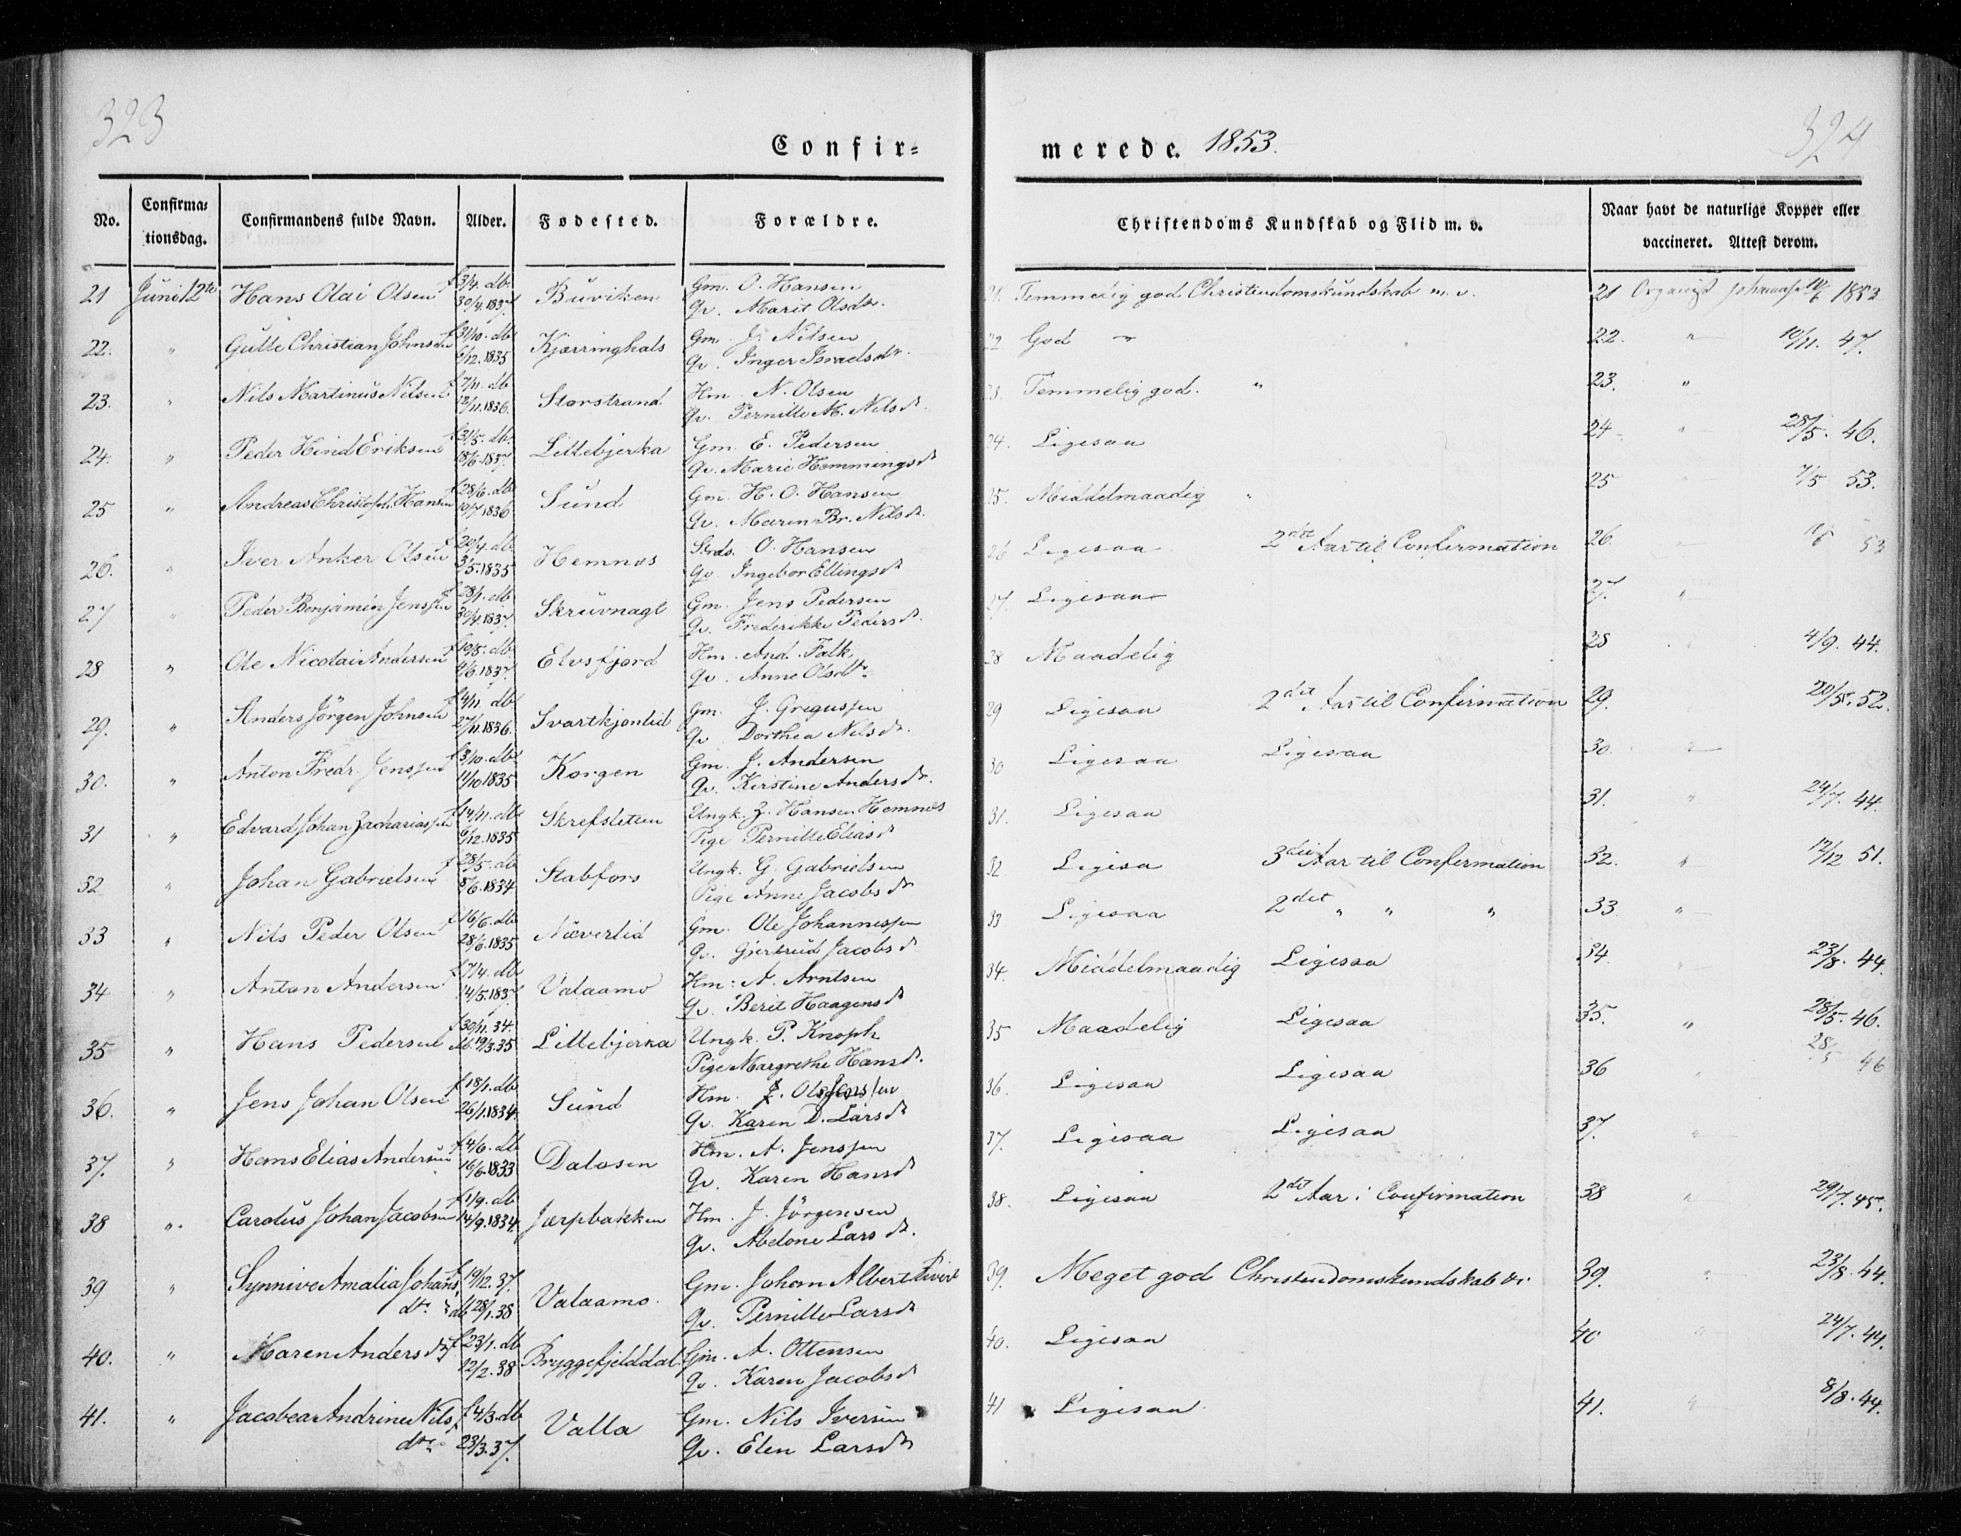 323
324
Confir-
merede. 1853.
No. Confirma- tionsdag. Confirmandens fulde Navn. Alder. Fødested. Forældre.
Christendoms Kundskab og Flid m. v. Naar havt de naturlige Kopper eller vaccineret. Attest derom.
21 Juni 12te Hans Olai Olsen f 3/4. db. 30/4.1837 Buviken Gm. O. Hansen
Qv. Marit Olsdr.
22. " Gutte Christian Johnsen f 31/10. db 6/12.1835 Kjærringhals Gm. J. Nilsen
Qv. Inger Israelsdr.
23. " Nils Martinus Nilsen f 7/11. db 12/11.1836. Storstrand Hm. N. Olsen
Qv. Pernille M. Nilsdr.
24. " Peder Hind Eriksen f 31/5. db. 18/6.1837. Littebjerka Gm. E. Pedersen
Qv. Marie Hemmingsdr
25 " Andreas Christoph. Hansen f 28/6. db 10/7.1836 Sund Gm. H. O. Hansen
Qv. Maren Br. Nilsdr.
26. " Iver Anker Olsen f 20/4. db 3/5.1835 Hemnæs Strds. O. Hansen
Qv. Ingebor Ellingsdr
27 " Peder Benjamin Jenssen f 28/1. db 30/4.1837. Skruvnagl Gm. Jens Pedersen
Qv. Frederikke Pedersdr.
28 " Ole Nicolai Andersen f 19/5. db 4/6.1837. Elvsfjord Hm. And. Falk
Qv. Anne Olsdtr
29. " Anders Jörgen Johnsen f 4/11 db 27/11.1836. Svartkjønlid Gm. J. Gregussen
Qv. Dorthea Nilsdr.
30. " Anton Fredr. Jenssen f 3/10. db 11/10.1835 Korgen Gm. J. Andersen
Qv. Kirstine Andersdr.
31 " Edvard Johan Zachariassen f 14/11. db 6/12.1835 Skrefsletten Ungk. Z. Hansen Hemnes
Pige Pernille Eliasdr
32 " Johan Gabrielsen f 28/5. db 8/6.1834 Stabfors Ungk. G. Gabrielsen
Pige Anne Jacobsdr
33 " Nils Peder Olsen f 16/6. db 28/6.1835 Næverlid Gm. Ole Johannessen
Qv. Gjertrud Jacobsdr
34 " Anton Andersen f 7/4. db 14/5.1837 Valaamo Hm. A. Arntsen
Qv. Berit Haagensdr
35 " Hans Pedersen f 30/11.34. db 19/3.35 Littebjerka Ungk. P. Knoph
Pige Margrethe Hansdr.
36. " Jens Johan Olsen f 18/1. db 26/1.1834. Sund Hm. Jenssen
Qv. Karen D. Larsdr
37. " Hans Elias Andersen f 4/6. db 16/6.1833 Dalosen Hm. A. Jenssen
Qv. Karen Hansdr
38 " Carolus Johan Jacobsen f 1/9. db 14/9.1834. Jærpbakken Hm. J. Jörgensen
Qv. Abelone Larsdr.
39 " Synnive Amalia Johans dtr. f 19/12.37. db 28/1.38 Valaamo. Gm. Johan Albert
Qv. Pernille Larsdr
40. " Maren Andersdr f 23/1. db 12/2.38 Bryggefjelddal Gm. A. Ottensen
Qv. Karen Jacobsdr
41. " Jacobea Andrine Nils dtr f 4/3. db 23/3.37. Valla Gm. Nils Iversen
Qv. Elen Larsdr
21. Temmelig god Christendomskundskab m. v. 21 Organist 1853
22. God " 22. " 10/11. 47.
23. Temmelig god. " 23. "
24. Ligesaa 24. " 28/5. 46.
25. Middelmaadig " 25 " 7/5 53.
26 Ligesaa 2det Aar til Confirmation 26. " 53
27. Ligesaa 27. "
28 Maadelig 28 " 4/9. 44.
29 Ligesaa 2det Aar til Confirmation 29. " 20/5. 52.
30 Ligesaa Ligesaa 30. "
31. Ligesaa 31. " 24/7. 44.
32 Ligesa 3die Aar til Confirmation 32. " 12/12 51.
33 Ligesaa 2det " " " 33 "
34. Middelmaadig Ligesaa 34 " 23/8. 44.
35 Maadelig Ligesaa 35. " 28/5. 46.
36. Ligesaa Ligesaa 36 " 28/5 46
37. Ligesaa Ligesaa 37. "
38. Ligesaa 2det Aar i Confirmation 38 " 29/7. 45.
39. Meget god Christendomskundskab &. 39. " 23/8. 44.
40. Ligesaa 40 " 24/7. 44.
41 Ligesaa 41. " 8/8. 44.